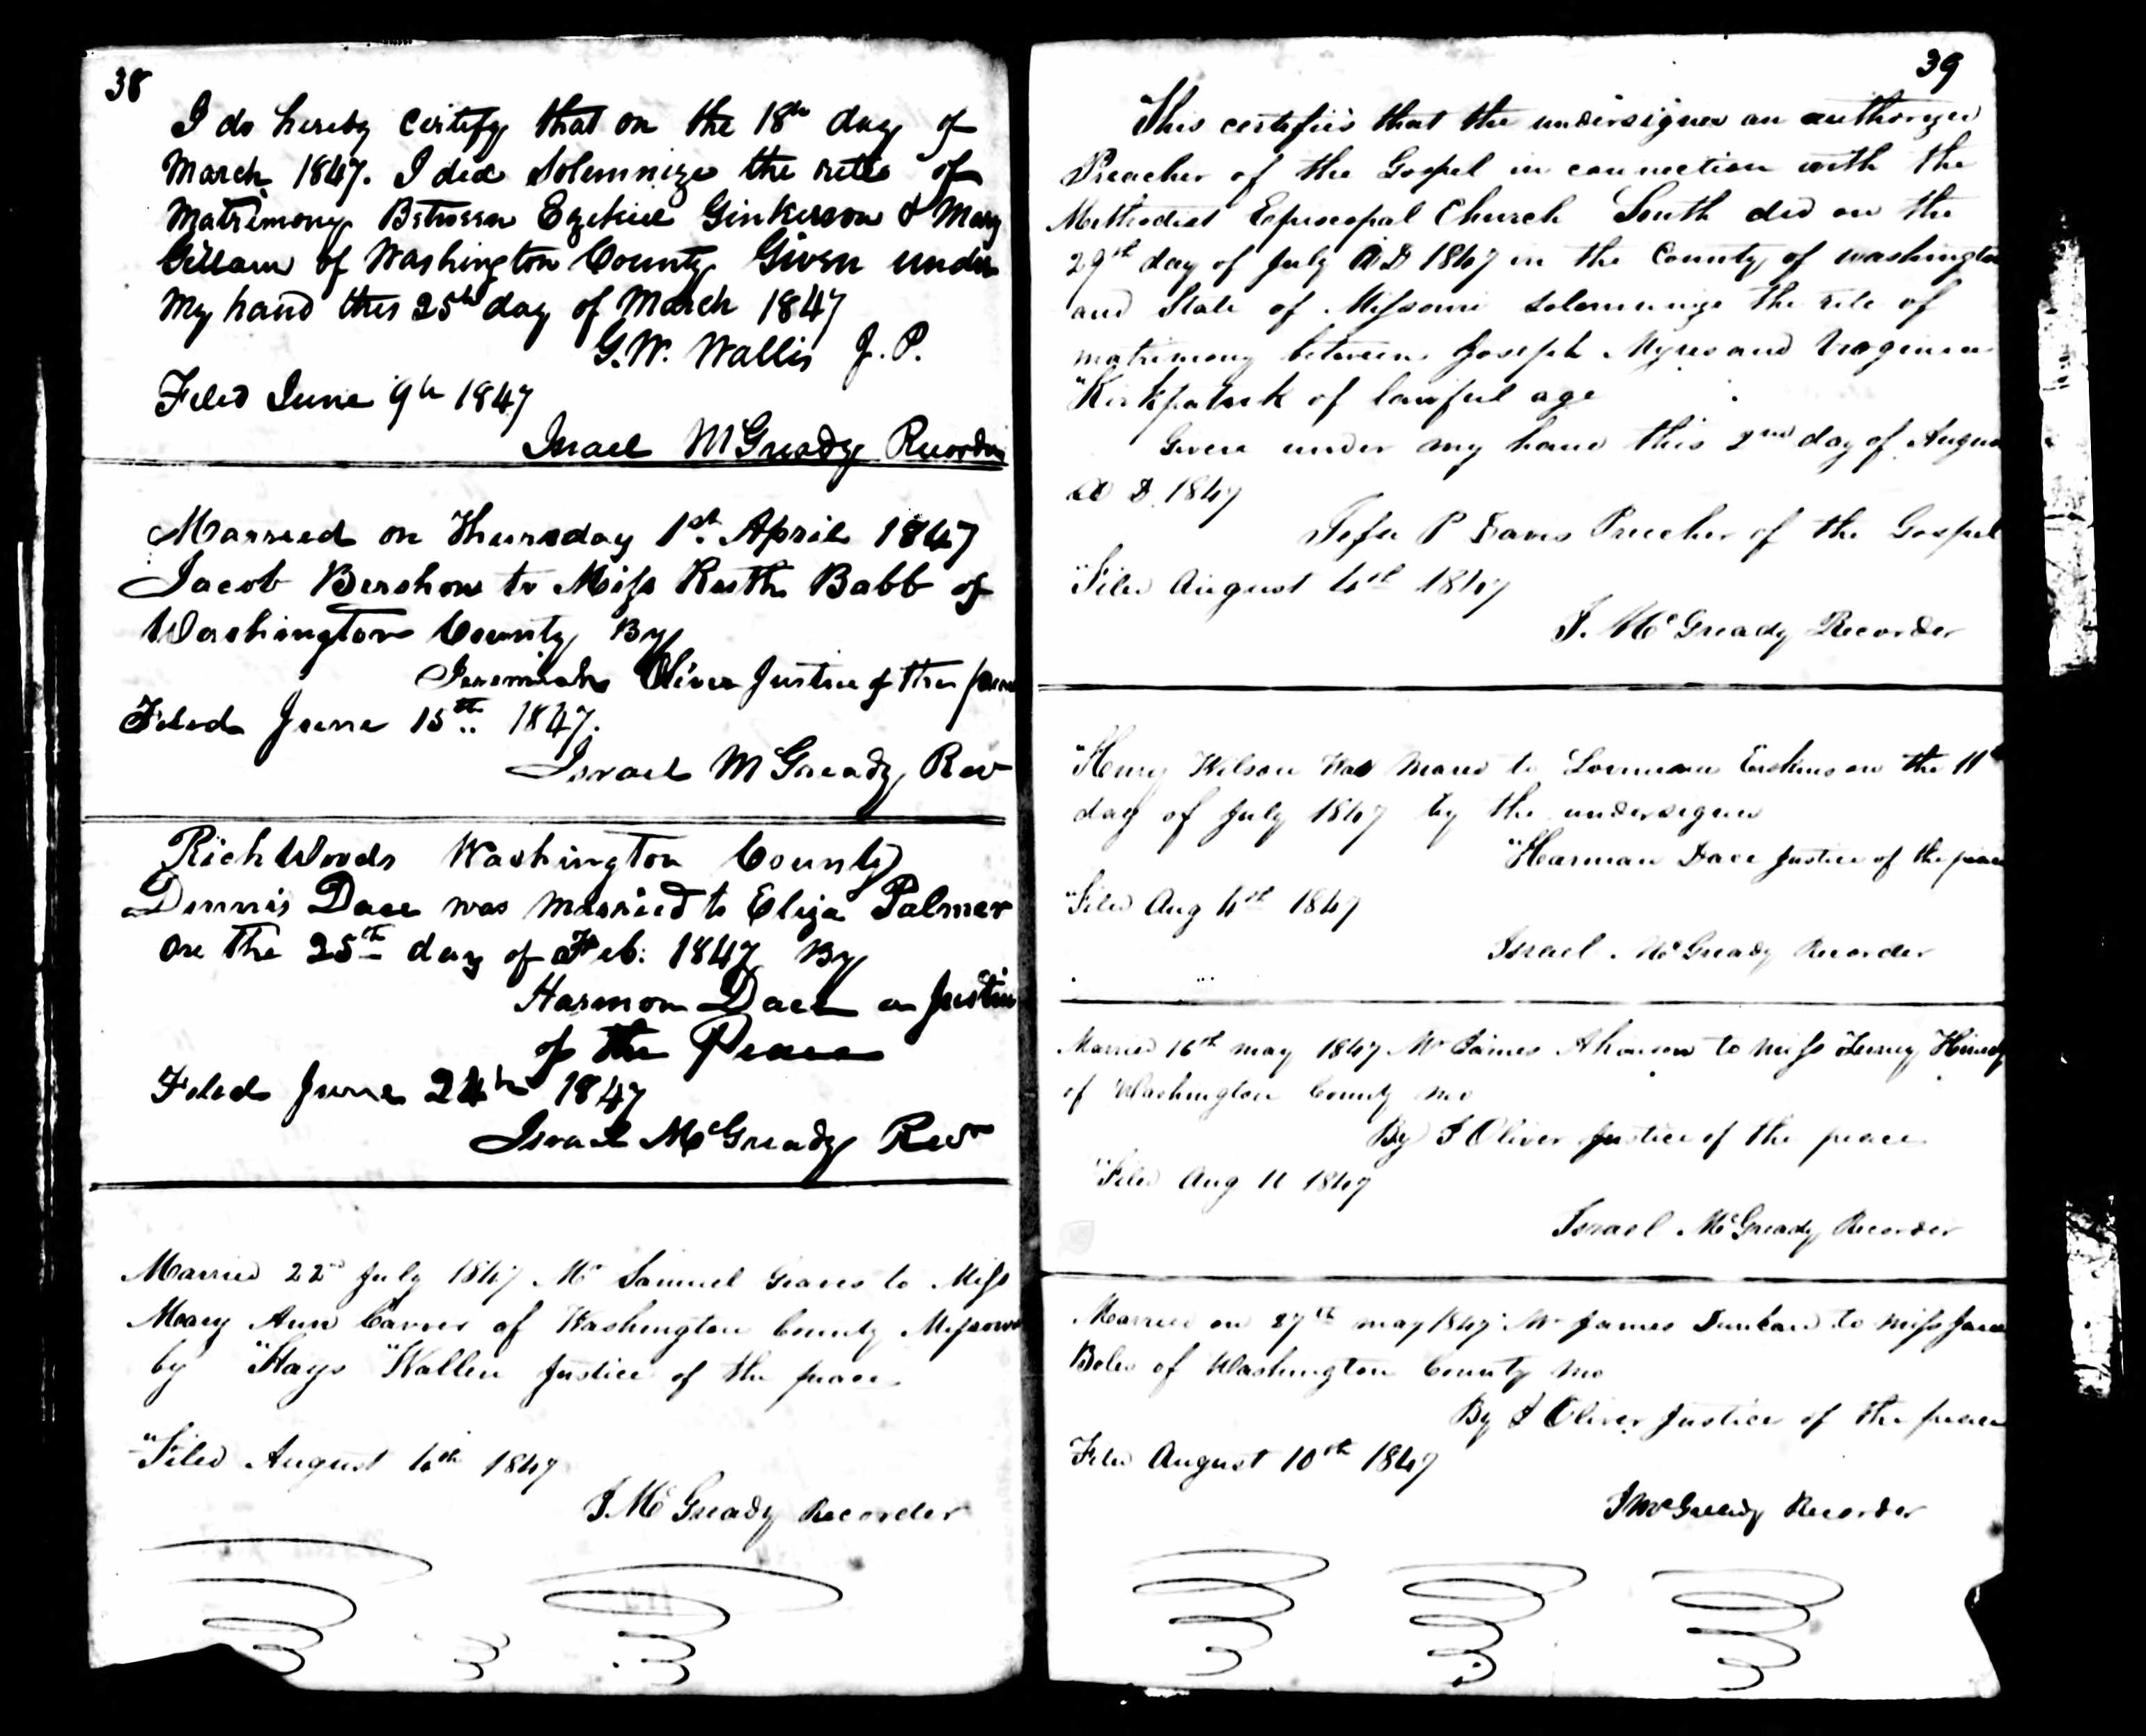 38
I do hereby certify that on the 18th day of
March 1847. I did Solemnize the rites of
Matrimony Between Ezekiel Ginkerson & Mary
Gillam of Washington County Given under
My hand this 25th day of March 1847
G. W. Wallis J. P.
Filed June 9th 1847
Israel McGready Recorder
Married on Thursday 1st April 1847
Jacob Bershow to Miss Ruth Babb of
Washington County By
Jeremiah Oliver Justice of the peace
Filed June 15th 1847.
Israel McGready Rec
RichWoods Washington County
Dennis Dace was married to Eliza Palmer
on the 25th day of Feb: 1847 By
Harmon Dace a Justice
of the Peace
Filed June 24th 1847
Israel McGready Recr
Married 22nd July 1847 Mr Samuel Graves to Miss
Mary Ann of Washington County Missouri
by Hays Wallen Justice of the peace
Filed August 4th 1847
I McGready Recorder
39
This certifies that the undersigned an authorized
Preacher of the Gospel in connection with the
Methodist Episcopal Church South did on the
29th day of July A D 1847 in the County of washington
and State of Missouri solemnize the rite of
matrimony between Joseph Myres and
Kirkpatrick of lawful age
Given under my hand this 2nd day of August
A D. 1847
P Davis Preacher of the Gospel
Filed August 4th 1847
I. McGready Recorder
Henry Wilson Was Maried to on the 11th
day of July 1847 by the undersigned
Harman Dace Justice of the peace
Filed Aug 4th 1847
Israel McGready Recorder
Married 16th may 1847 Mr James to miss
of Washington County Mo
By I Oliver Justice of the peace
Filed Aug 1847
Israel McGready Recorder
Married on 27th may 1847 Mr James Duncan to miss Jane
Boles of Washington County Mo
By I Oliver Justice of the peace
Filed August 10th 1847
I McGready Recorder